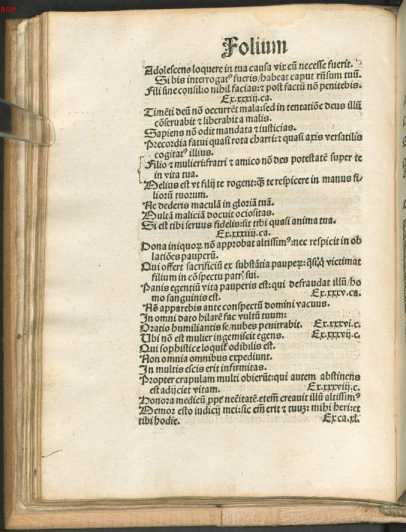 Folium
Adolescens loquere in tua causa vix cū necesse fuerit.
Si bis interrogat⁹ fueris/habeat caput rn̄sum tuū.
Fili sine consilio nihil facias:⁊ post factū nō penitebis.
Ex.xxxiij.ca.
Timēti deū nō occurrēt mala:sed in tentatiōe deus illū
cōseruabit ⁊ liberabit a malis.
Sapiens nō odit mandata ⁊ iusticias.
Precordia fatui quasi rota charri:⁊ quasi axis versatilis
cogitat⁹ illius.
Filio ⁊ mulieri:fratri ⁊ amico nō des potestatē super te
in vita tua.
Melius est vt filij te rogent:q̄ȝ te respicere in manus fi-
liorū tuorum.
Ne dederis maculā in gloriā tuā.
Multā maliciā docuit ociositas.
Si est tibi seruus fidelis:sit tibi quasi anima tua.
Ex.xxxiiij.ca.
Dona iniquoꝝ nō approbat altissim⁹:nec respicit in ob
latiōes pauperū.
Qui offert sacrificiū ex substātia paupeꝝ: q̄si q̇ victimat
filium in cōspectu patr̄ sui.
Panis egentiū vita pauperis est:qui defraudat illū/ho
mo sanguinis est. Ex.xxxv.ca.
Nō apparebis ante conspectū domini vacuus.
In omni dato hilarē fac vultū tuum:
Oratio humiliantis se/nubes penitrabit. Ex.xxxvi.c.
Ubi nō est mulier ingemiscit egens. Ex.xxxvij.c.
Qui sophistice loquit̄ odibilis est.
Non omnia omnibus expediunt.
In multis escis erit infirmitas.
Propter crapulam multi obierūt:qui autem abstinens
est adijciet vitam. Ex.xxxviij.c.
Honora medicū ꝓpt̄ necītatē.eteīm creauit illū altissim⁹
Memor esto iudicij mei:sic em̄ erit ⁊ tuuȝ: mihi heri:et
tibi hodie. Ex ca.xl.